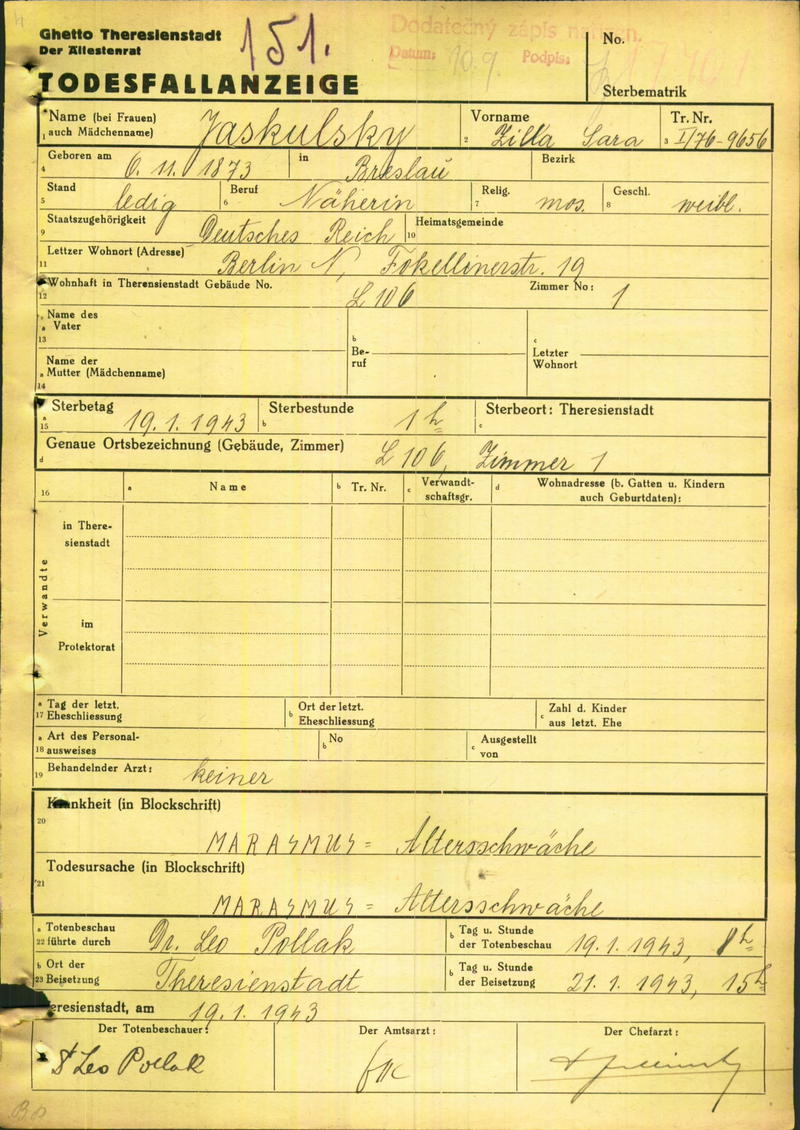 Ghetto Theresienstadt
Der Ältestenrat
151.
Dodatečný zápis
Datum: 10.9. Podpis:
No.
TODESFALLANZEIGE
Sterbematrik
1 Name (bei Frauen) auch Mädchenname) Jaskulsky 2 Vorname Zilla Sara 3 Tr. Nr. I/76-9656
4 Geboren am 6. 11. 1873 in Breslau Bezirk
5 Stand ledig 6 Beruf Näherin 7 Relig. mos. 8 Geschl. weibl.
9 Staatszugehörigkeit Deutsches Reich 10 Heimatsgemeinde
11 Lettzer Wohnort (Adresse) Berlin N, Fokellinerstr. 19
12 Wohnhaft in Therensienstadt Gebäude No. L 106 Zimmer No: 1
13 a Name des Vater b Beruf c Letzter Wohnort
14 a Name der Mutter (Mädchenname)
15 a Sterbetag 19. 1. 1943 b Sterbestunde 1 h c Sterbeort: Theresienstadt
d Genaue Ortsbezeichnung (Gebäude, Zimmer) L 106, Zimmer 1
16 a Name b Tr. Nr. c Verwandtschaftsgr. d Wohnadresse (b. Gatten u. Kindern auch Geburtdaten):
Verwandte
in Theresienstadt
im Protektorat
17 a Tag der letzt. Eheschliessung b Ort der letzt. Eheschliessung c Zahl d. Kinder aus letzt. Ehe
18 a Art des Personalausweises b No c Ausgestellt von
19 Behandelnder Arzt: keiner
20 Krankheit (in Blockschrift)
MARASMUS = Altersschwäche
21 Todesursache (in Blockschrift)
MARASMUS = Altersschwäche
22 a Totenbeschau führte durch Dr. Leo Pollak b Tag u. Stunde der Totenbeschau 19. 1. 1943, 8 h
23 b Ort der Beisetzung Theresienstadt b Tag u. Stunde der Beisetzung 21. 1. 1943, 15 h
eresienstadt, am 19. 1. 1943
Der Totenbeschauer: Der Amtsarzt: Der Chefarzt:
Leo Pollak